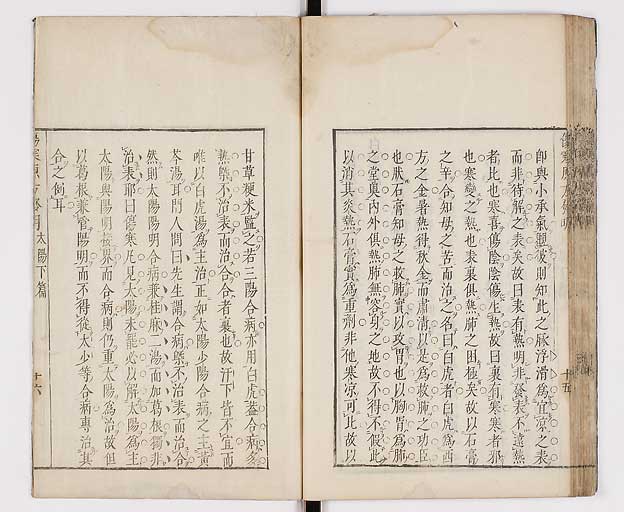 卽與小承氣湯彼則知此之脉浮滑爲宜凉之表
而非待解之表矣故曰表有熱明非發表不遠熱
者比也寒喜傷陰陰傷生熱故曰裏有寒寒者邪
也寒變之熱也表裏俱熱肺之困極矣故以石膏
之辛合知母之苦而治之名曰白虎者白虎爲西
方之金暑熱得秋金而肅清以是爲救肺之功臣
也狀石膏知母之救肺實以攻胃也以胸胃爲肺
之堂奧内外俱熱肺無容身之地故不得不假此
以消其炎熱石膏實爲重劑非他寒凉可比故以
十五
甘草粳米監之若三陽合病亦用白虎蓋合病多
熱槩不治表而治合合者裏也故汗下皆不宜而
唯以白虎湯爲主治正如太陽少陽合病之主黃
芩湯耳門人問曰先生謂合病槩不治表而治合
然則太陽陽明合病兼桂麻二湯而加葛根獨非
治表耶曰傷寒凡見太陽未罷必以解太陽爲主
太陽與陽明接界而合病則仍重太陽爲治故但
以葛根兼管陽明而不得從太少等合病專治其
合之例耳
太陽下篇
十六